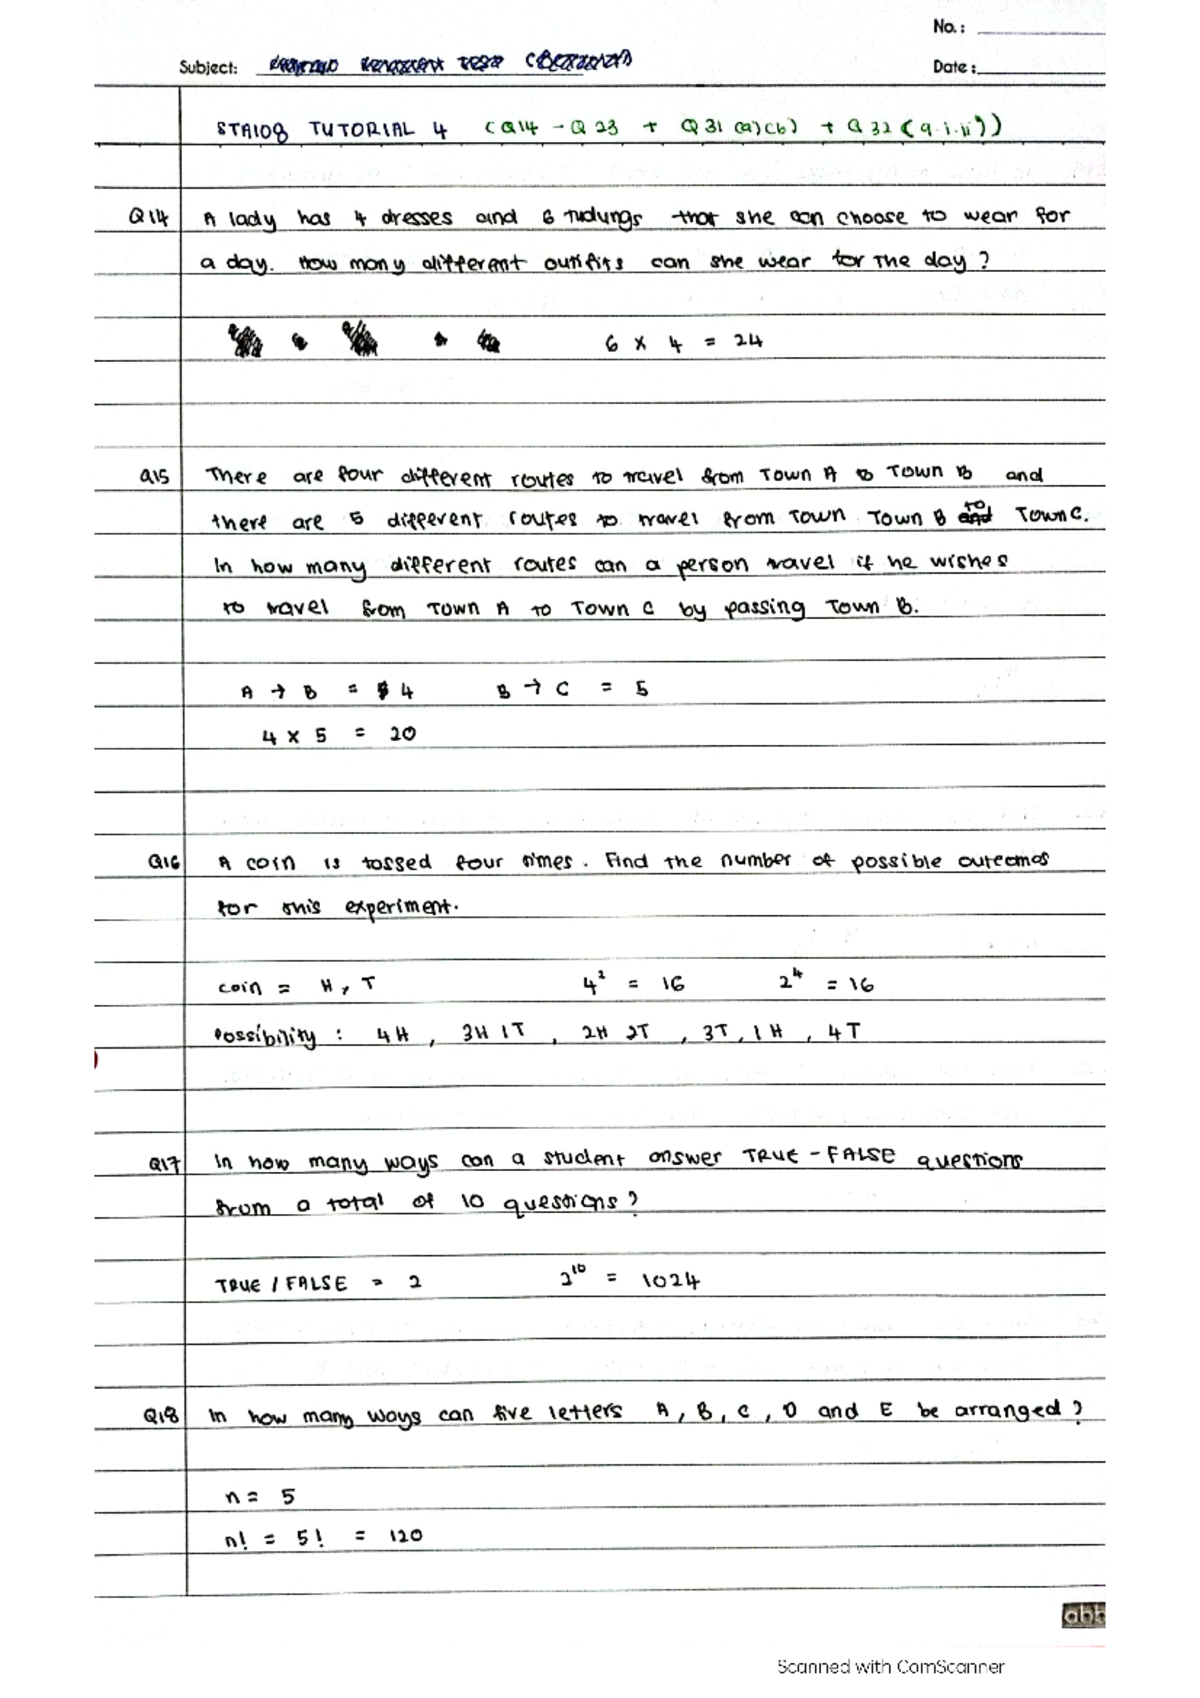 No. :
Subject:
Date :
STA108 TUTORIAL 4 (Q14 - Q23 + Q31 (a)(b) + Q32 (a.i.ii))
Q14 A lady has 4 dresses and 6 Tudungs that she can choose to wear for
a day. How many different outifits can she wear for the day ?
6 x 4 = 24
Q15 There are four different routes to travel from Town A to Town B and
there are 5 different routes to travel from Town Town B and to Town C.
In how many different routes can a person travel if he wishes
to travel from Town A to Town C by passing Town B.
A → B = 4 B → C = 5
4 x 5 = 20
Q16 A coin is tossed four times. Find the number of possible outcomes
for this experiment.
coin = H, T 4² = 16 2⁴ = 16
Possibility : 4H , 3H 1T , 2H 2T , 3T, 1H , 4T
Q17 In how many ways can a student answer TRUE - FALSE questions
from a total of 10 questions ?
TRUE / FALSE = 2 2¹⁰ = 1024
Q18 In how many ways can five letters A, B, C, D and E be arranged ?
n = 5
n! = 5! = 120
abb
Scanned with CamScanner